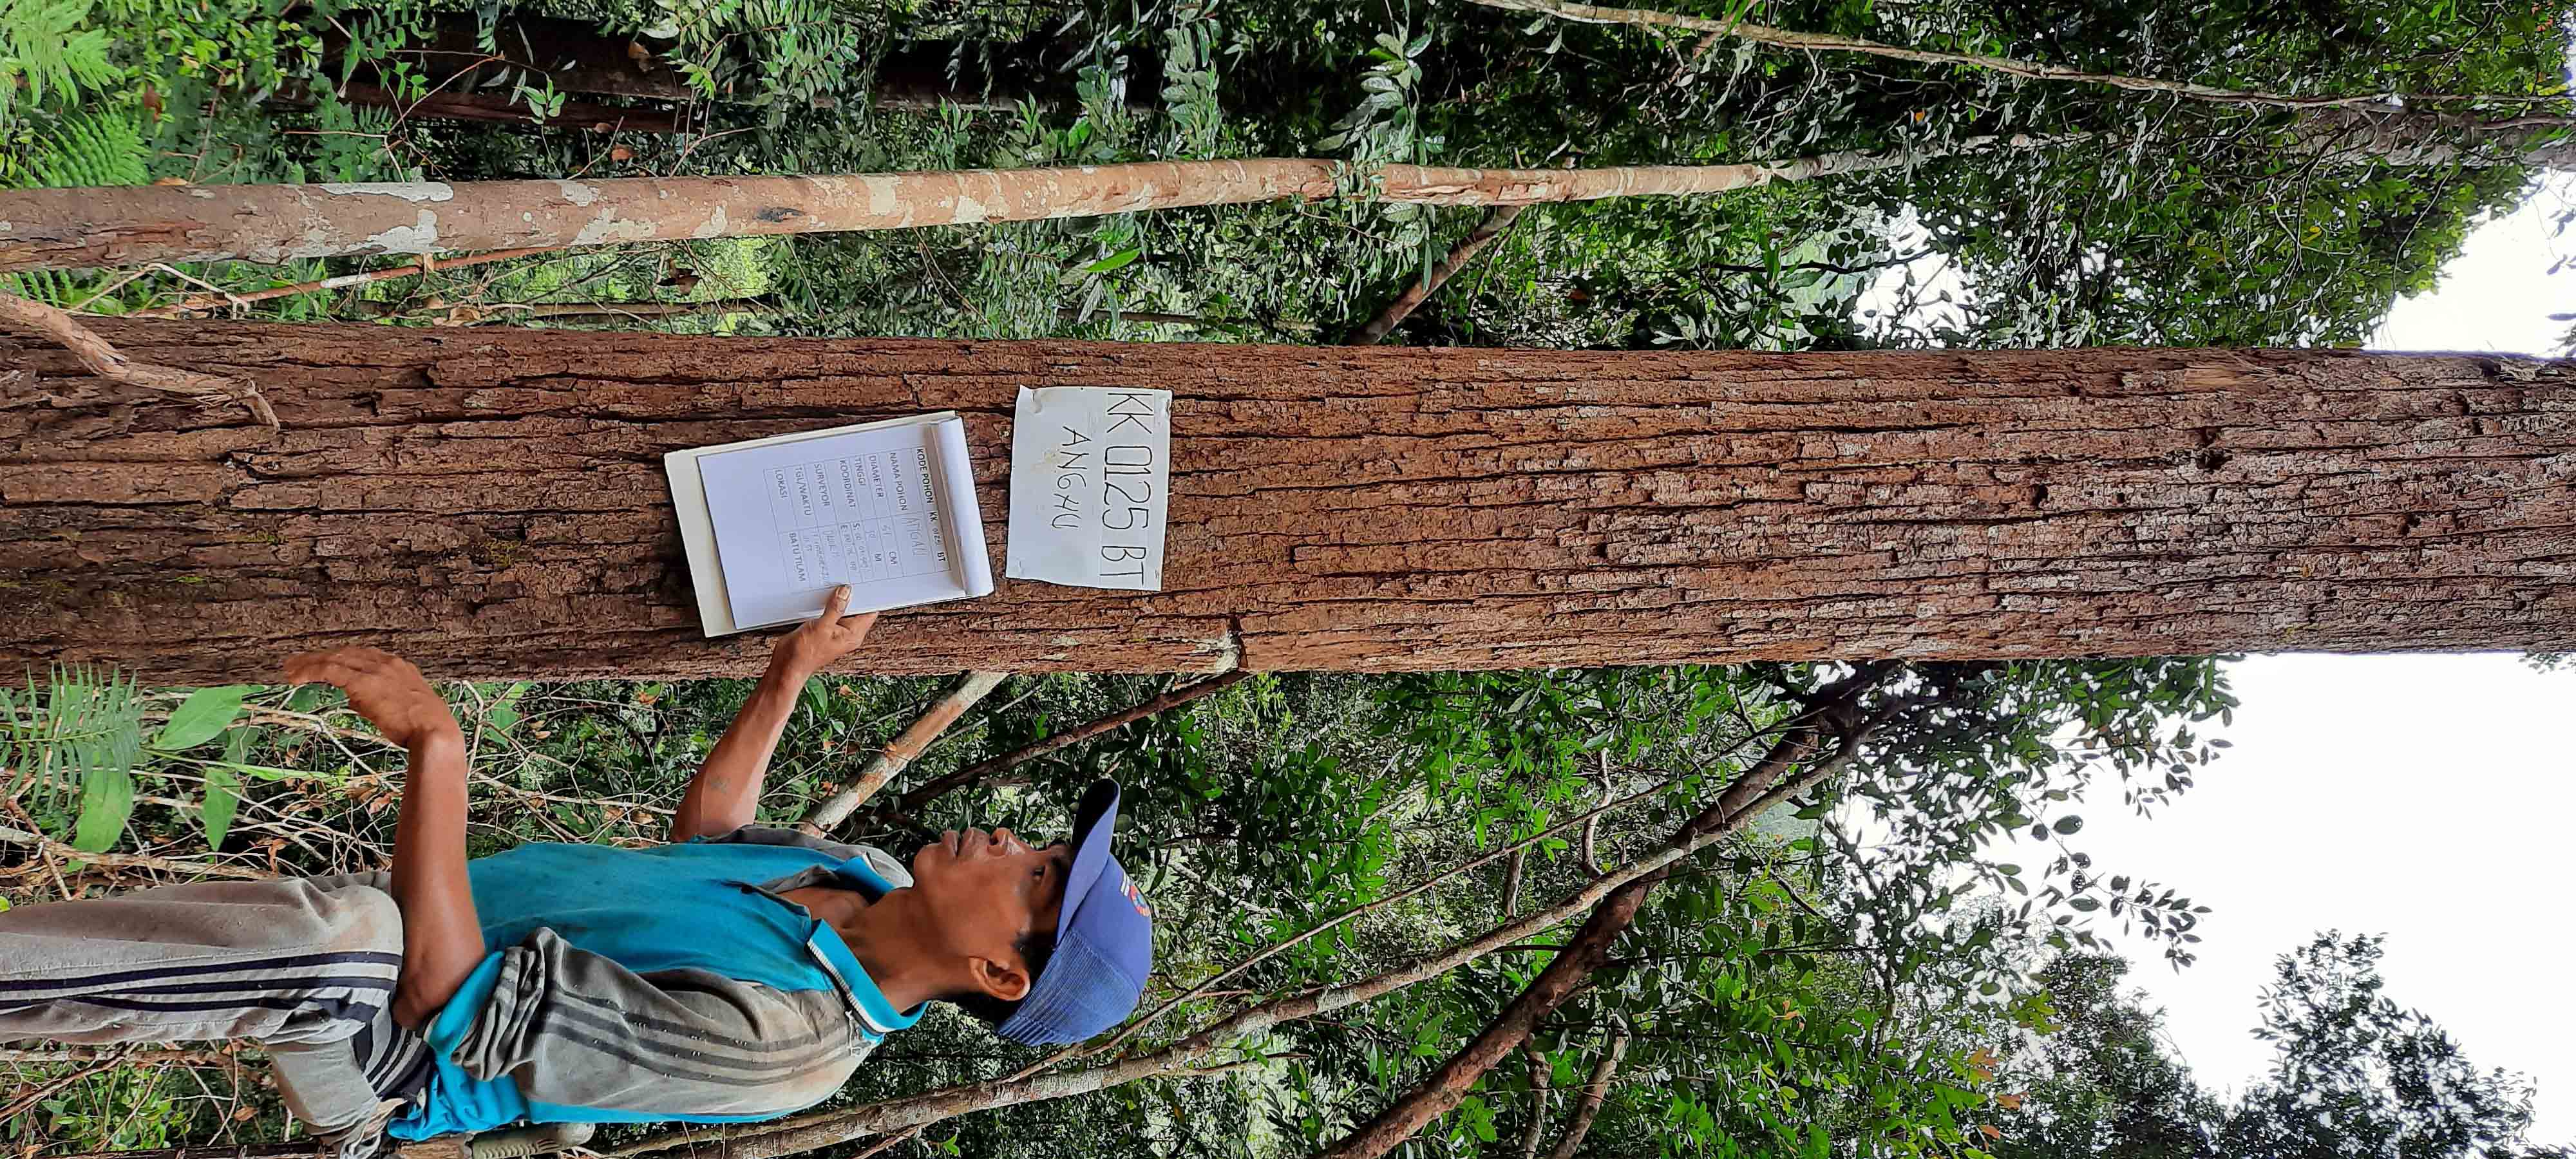 KK 0125 BT
ANGAU
KODE POHON KK 0125 BT
NAMA POHON
DIAMETER CM
TINGGI M
KOORDINAT S:
E:
SURVEYOR
TGL/WAKTU
LOKASI BATU TILAM